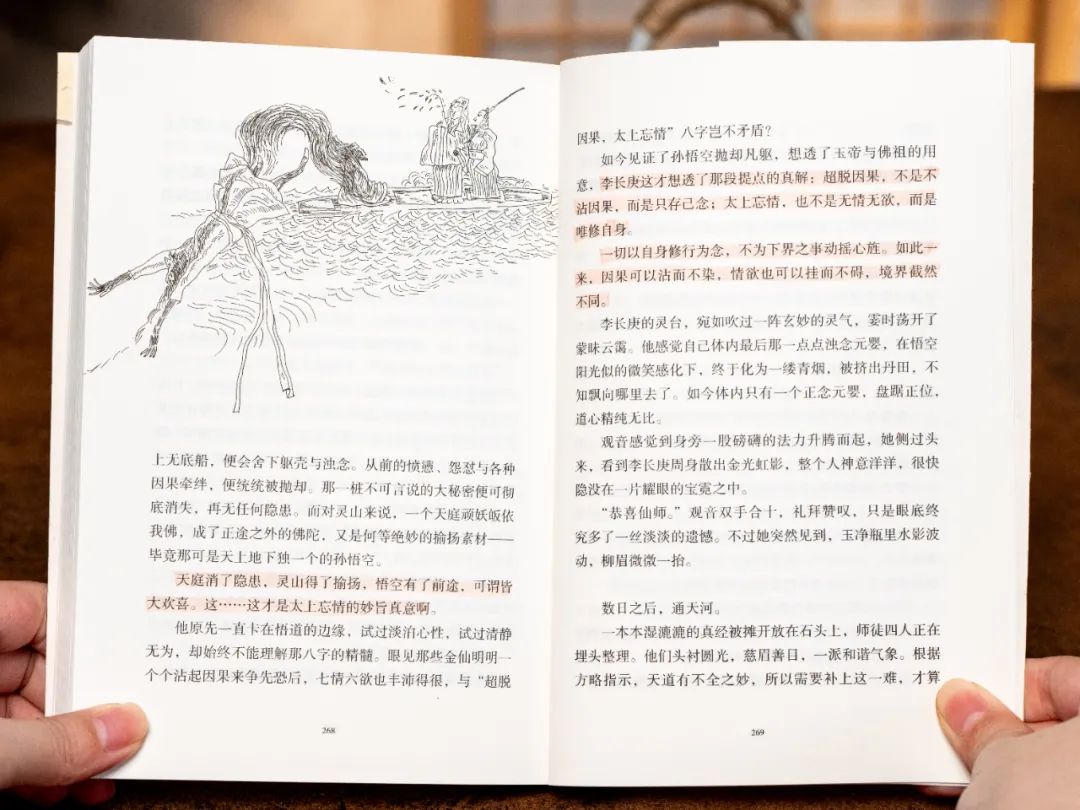 上无底船，便会舍下躯壳与浊念。从前的愤懑、怨怼与各种
因果牵绊，便统统被抛却。那一桩不可言说的大秘密便可彻
底消失，再无任何隐患。而对灵山来说，一个天庭顽妖皈依
我佛，成了正途之外的佛陀，又是何等绝妙的揄扬素材——
毕竟那可是天上地下独一个的孙悟空。
天庭消了隐患，灵山得了揄扬，悟空有了前途，可谓皆
大欢喜。这……这才是太上忘情的妙旨真意啊。
他原先一直卡在悟道的边缘，试过淡泊心性，试过清静
无为，却始终不能理解那八字的精髓。眼见那些金仙明明一
个个沾起因果来争先恐后，七情六欲也丰沛得很，与“超脱
268
因果，太上忘情”八字岂不矛盾？
如今见证了孙悟空抛却凡躯，想透了玉帝与佛祖的用
意，李长庚这才想透了那段提点的真解：超脱因果，不是不
沾因果，而是只存己念；太上忘情，也不是无情无欲，而是
唯修自身。
一切以自身修行为念，不为下界之事动摇心旌。如此一
来，因果可以沾而不染，情欲也可以挂而不碍，境界截然
不同。
李长庚的灵台，宛如吹过一阵玄妙的灵气，霎时荡开了
蒙昧云霭。他感觉自己体内最后那一点点浊念元婴，在悟空
阳光似的微笑感化下，终于化为一缕青烟，被挤出丹田，不
知飘向哪里去了。如今体内只有一个正念元婴，盘踞正位，
道心精纯无比。
观音感觉到身旁一股磅礴的法力升腾而起，她侧过头
来，看到李长庚周身散出金光虹影，整个人神意洋洋，很快
隐没在一片耀眼的宝霓之中。
“恭喜仙师。”观音双手合十，礼拜赞叹，只是眼底终
究多了一丝淡淡的遗憾。不过她突然见到，玉净瓶里水影波
动，柳眉微微一抬。
数日之后，通天河。
一本本湿漉漉的真经被摊开放在石头上，师徒四人正在
埋头整理。他们头衬圆光，慈眉善目，一派和谐气象。根据
方略指示，天道有不全之妙，所以需要补上这一难，才算
269